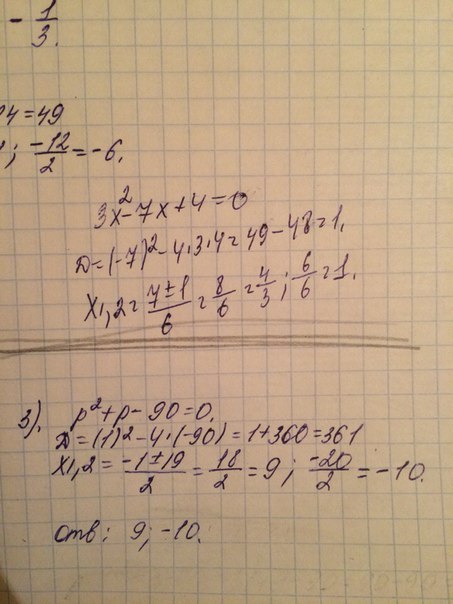 - 1/3.
4 = 49
; -12/2 = -6.
3x² - 7x + 4 = 0
D = (-7)² - 4·3·4 = 49 - 48 = 1.
X1,2 = 7±1/6 = 8/6 = 4/3; 6/6 = 1.
3). p² + p - 90 = 0.
D = (1)² - 4·(-90) = 1 + 360 = 361
X1,2 = -1±19/2 = 18/2 = 9; -20/2 = -10.
Отв: 9; -10.